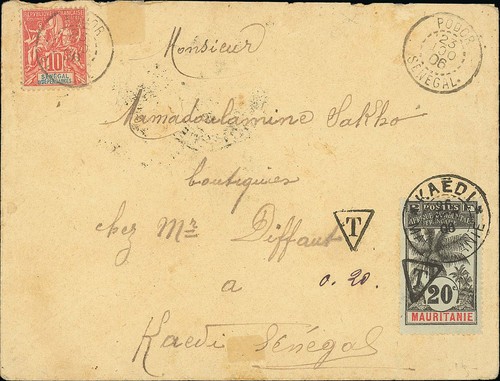 RÉPUBLIQUE FRANÇAISE
10
SÉNÉGAL
ET DÉPENDANCES
PODOR
23
06
SÉNÉGAL
Monsieur
Mamadoulamine Sakho
boutiquier
chez Mr Diffaut
T
0.20.
a
Kaedi Sénégal
KAËDI
06
POSTES
AFRIQUE OCCIDENTALE
FRANÇAISE
T
20
MAURITANIE